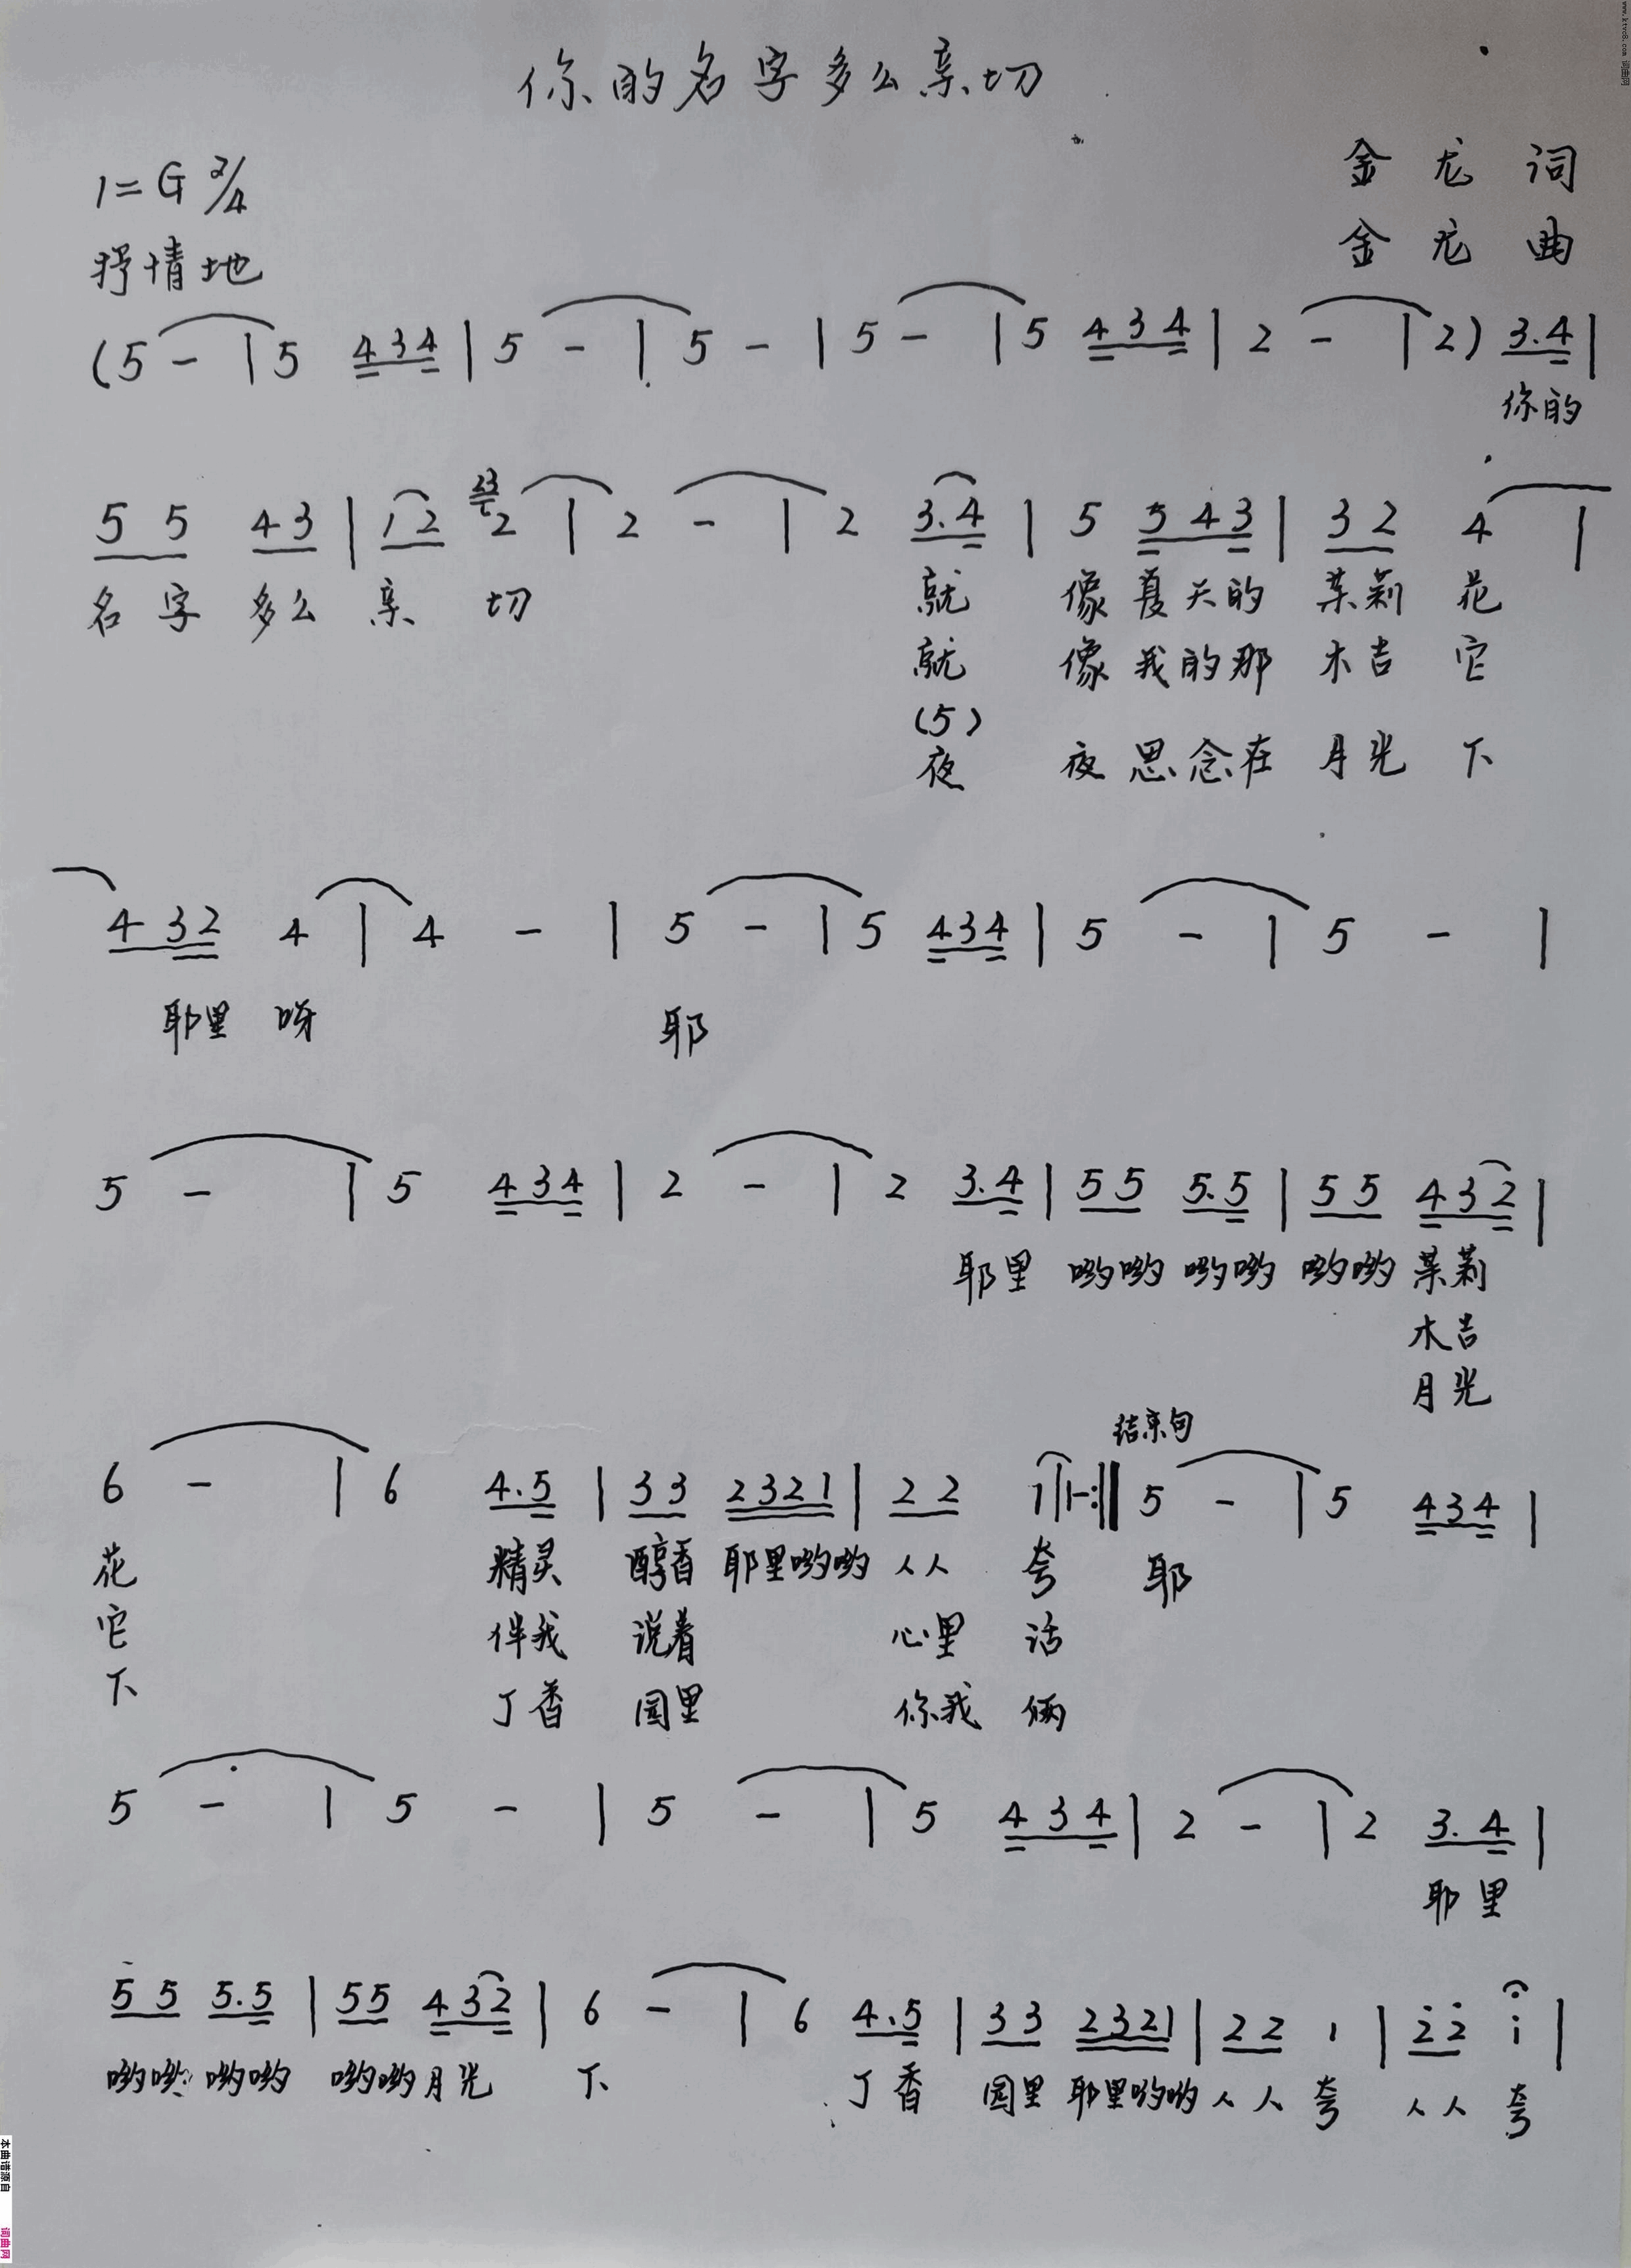 www.ktvc8.com 词曲网
你的名字多么亲切
1=G 2/4
金龙词
抒情地
金龙曲
(5 - | 5 434 | 5 - | 5 - | 5 - | 5 434 | 2 - | 2) 3.4 |
你的
5 5 4 3 | 1 2 23 2 | 2 - | 2 3.4 | 5 5 4 3 | 3 2 4 |
名字 多么 亲 切 就 像 夏天的 茉莉 花
就 像 我的那 木吉 它
(5)
夜 夜 思念在 月光 下
4 3 2 4 | 4 - | 5 - | 5 434 | 5 - | 5 - |
耶里 呀 耶
5 - | 5 434 | 2 - | 2 3.4 | 5 5 5.5 | 5 5 4 3 2 |
耶里 哟哟 哟哟 哟哟 茉莉
木吉
月光
结束句
6 - | 6 4.5 | 3 3 2321 | 2 2 1 | 1 - :‖ 5 - | 5 434 |
花 精灵 醇香 耶里哟哟 人人 夸 耶
它 伴我 说着 心里 话
下 丁香 园里 你我 俩
5 - | 5 - | 5 - | 5 434 | 2 - | 2 3.4 |
耶里
5 5 5.5 | 5 5 4 3 2 | 6 - | 6 4.5 | 3 3 2321 | 2 2 1 | 2̇ 2̇ 1̇ |
哟哟 哟哟 哟哟 月光 下 丁香 园里 耶里哟哟 人人 夸 人人 夸
本曲谱源自
词曲网